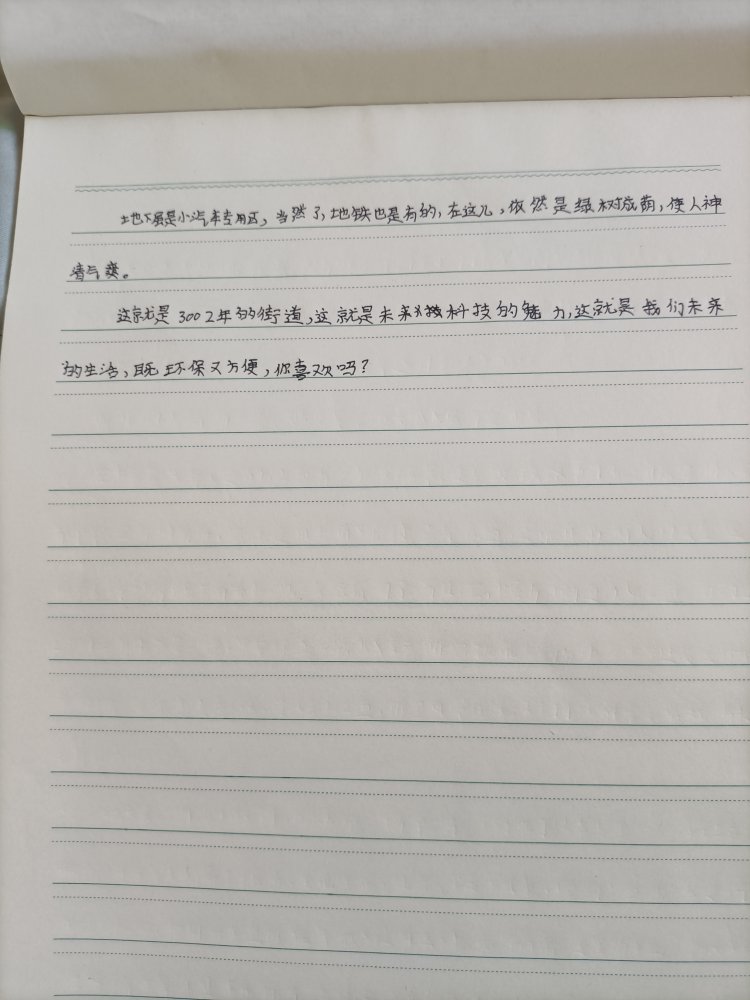 地下层是小汽车专用区，当然了，地铁也是有的，在这儿，依然是绿树成荫，使人神
清气爽。
这就是3002年的街道，这就是未来科技的魅力，这就是我们未来
的生活，既环保又方便，你喜欢吗？